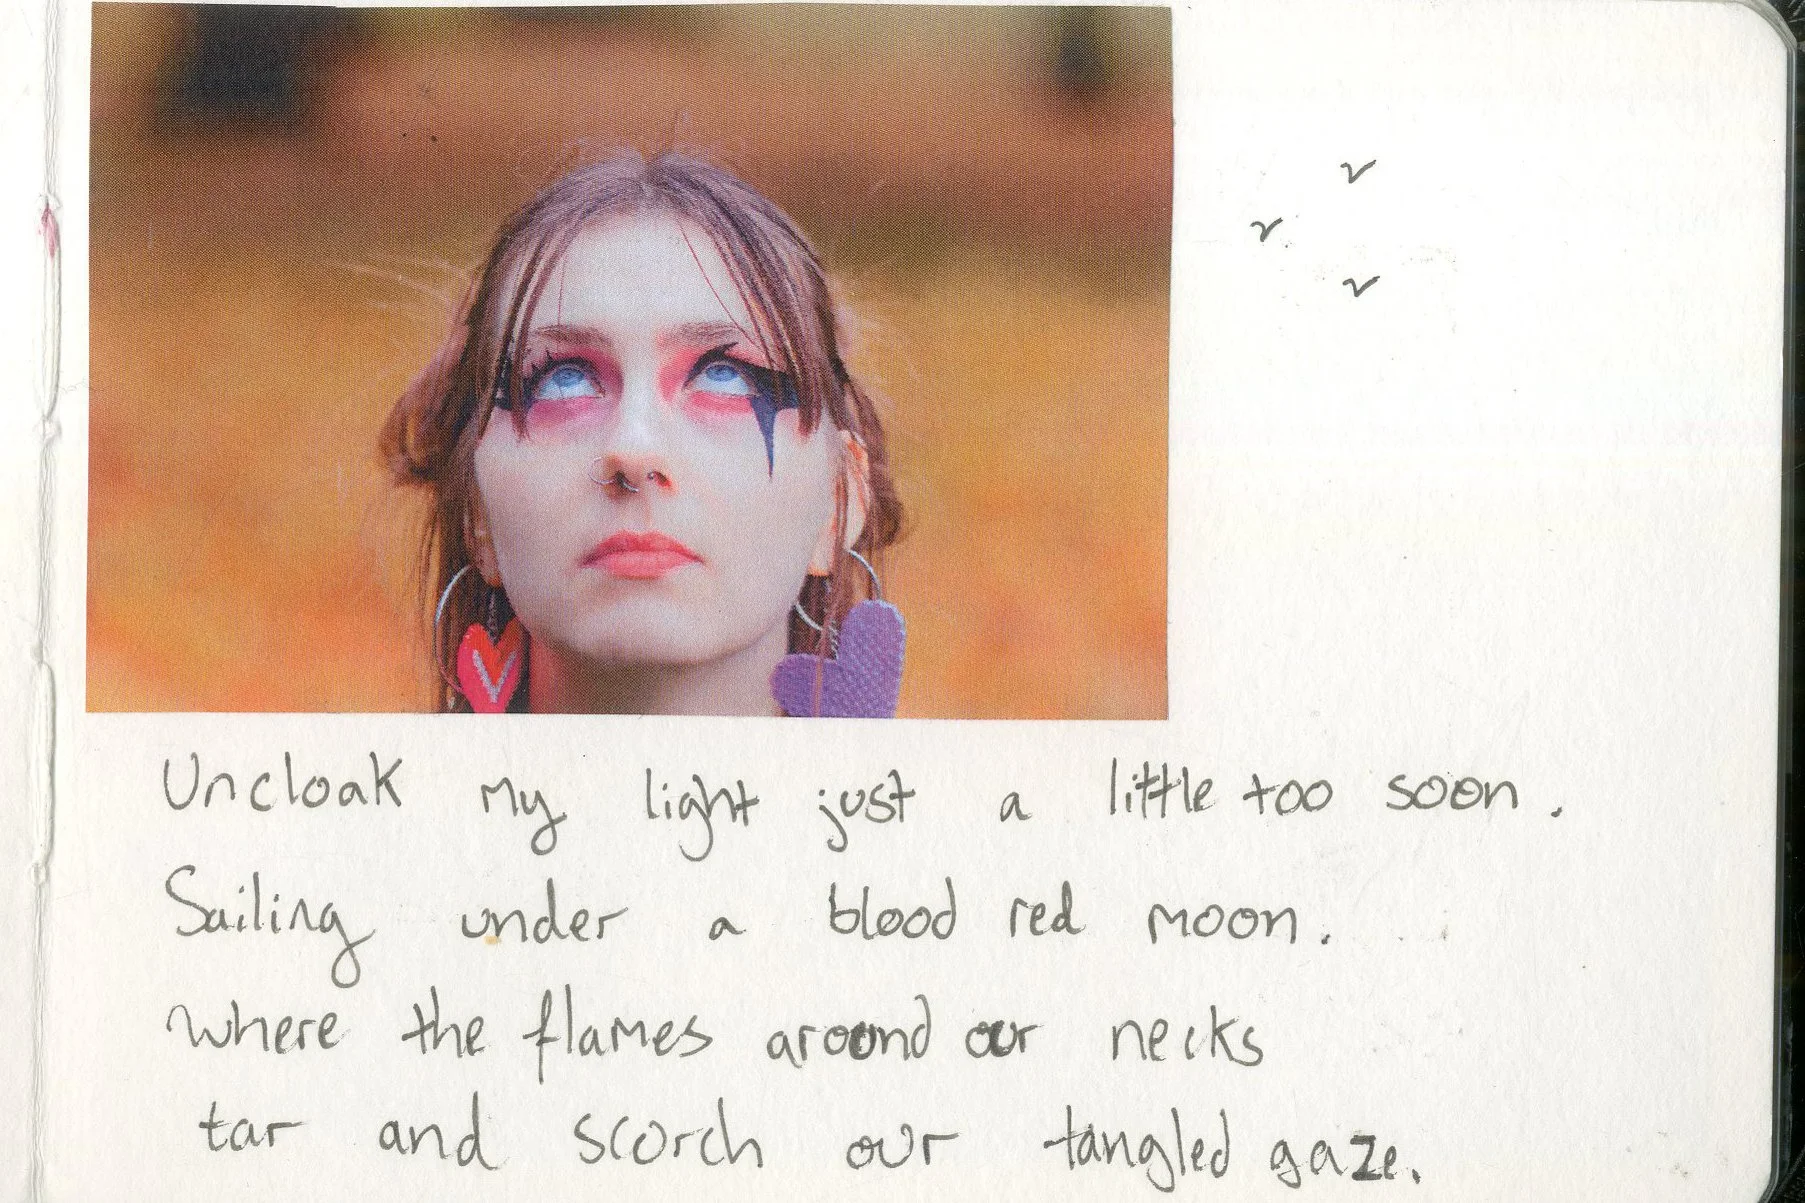 Uncloak my light just a little too soon.
Sailing under a blood red moon.
Where the flames around our necks
tar and scorch our tangled gaze.